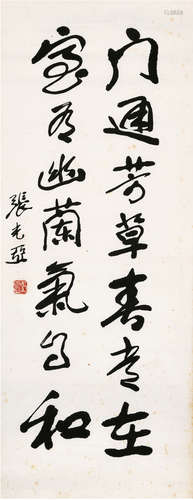 门通芳草春常在
室有幽蘭氣自和
張光亞